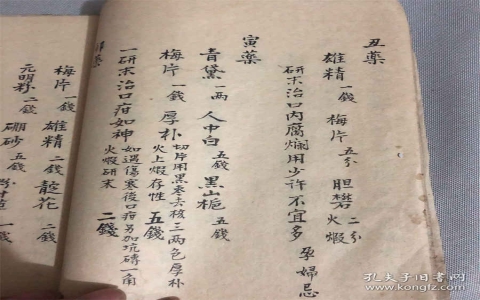 丑藥
雄精一錢 梅片五分 胆礬火煅二分
研末治口內腐爛用少许不宜多 孕婦忌
寅藥
青黛一两 人中白五錢 黑山梔五錢
梅片一錢 厚朴切片用黑枣去核三两色厚朴火上煅存性五錢
一研末治口疳如神 如遇傷寒後口疳另加坑磚一角火煅研末二錢
梅片一錢 雄精二錢 龍花二錢
元明粉二錢 硼砂五錢
孔夫子旧书网
www.kongfz.com